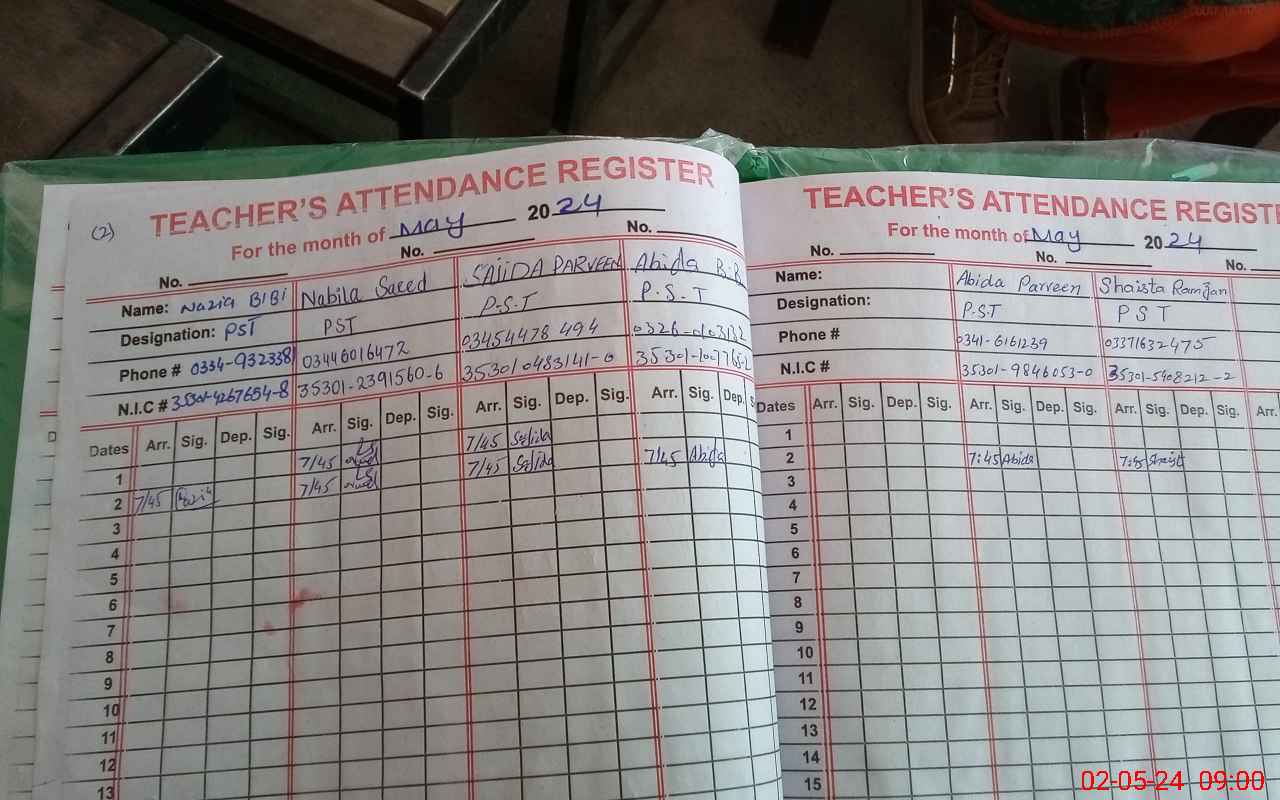 (2)
TEACHER'S ATTENDANCE REGISTER
For the month of May 2024
No. No. No.
Name: Nazia BIBI Nabila Saeed SAJIDA PARVEEN Abida
Designation: PST PST P.S.T P.S.T
Phone # 0334-932338 03446016472 03454478494
N.I.C # 35301-4267654-8 35301-2391560-6 35301 0483141-0
Dates Arr. Sig. Dep. Sig. Arr. Sig. Dep. Sig. Arr. Sig. Dep. Sig. Arr. Sig. Dep.
1 7/45 7/45 Sajida
2 7/45 7/45 7/45 Sajida 7/45 Abida
3
4
5
6
7
8
9
10
11
12
13
TEACHER'S ATTENDANCE REGIST
For the month of May 2024
No. No. No.
Name: Abida Parveen Shaista Ramzan
Designation: P.S.T P S T
Phone # 0341-6161239 03371632475
N.I.C # 35301-9846053-0 35301-5408212-2
Dates Arr. Sig. Dep. Sig. Arr. Sig. Dep. Sig. Arr. Sig. Dep. Sig. Arr.
1
2 7:45 Abida 7:45
3
4
5
6
7
8
9
10
11
12
13
14
15
02-05-24 09:00